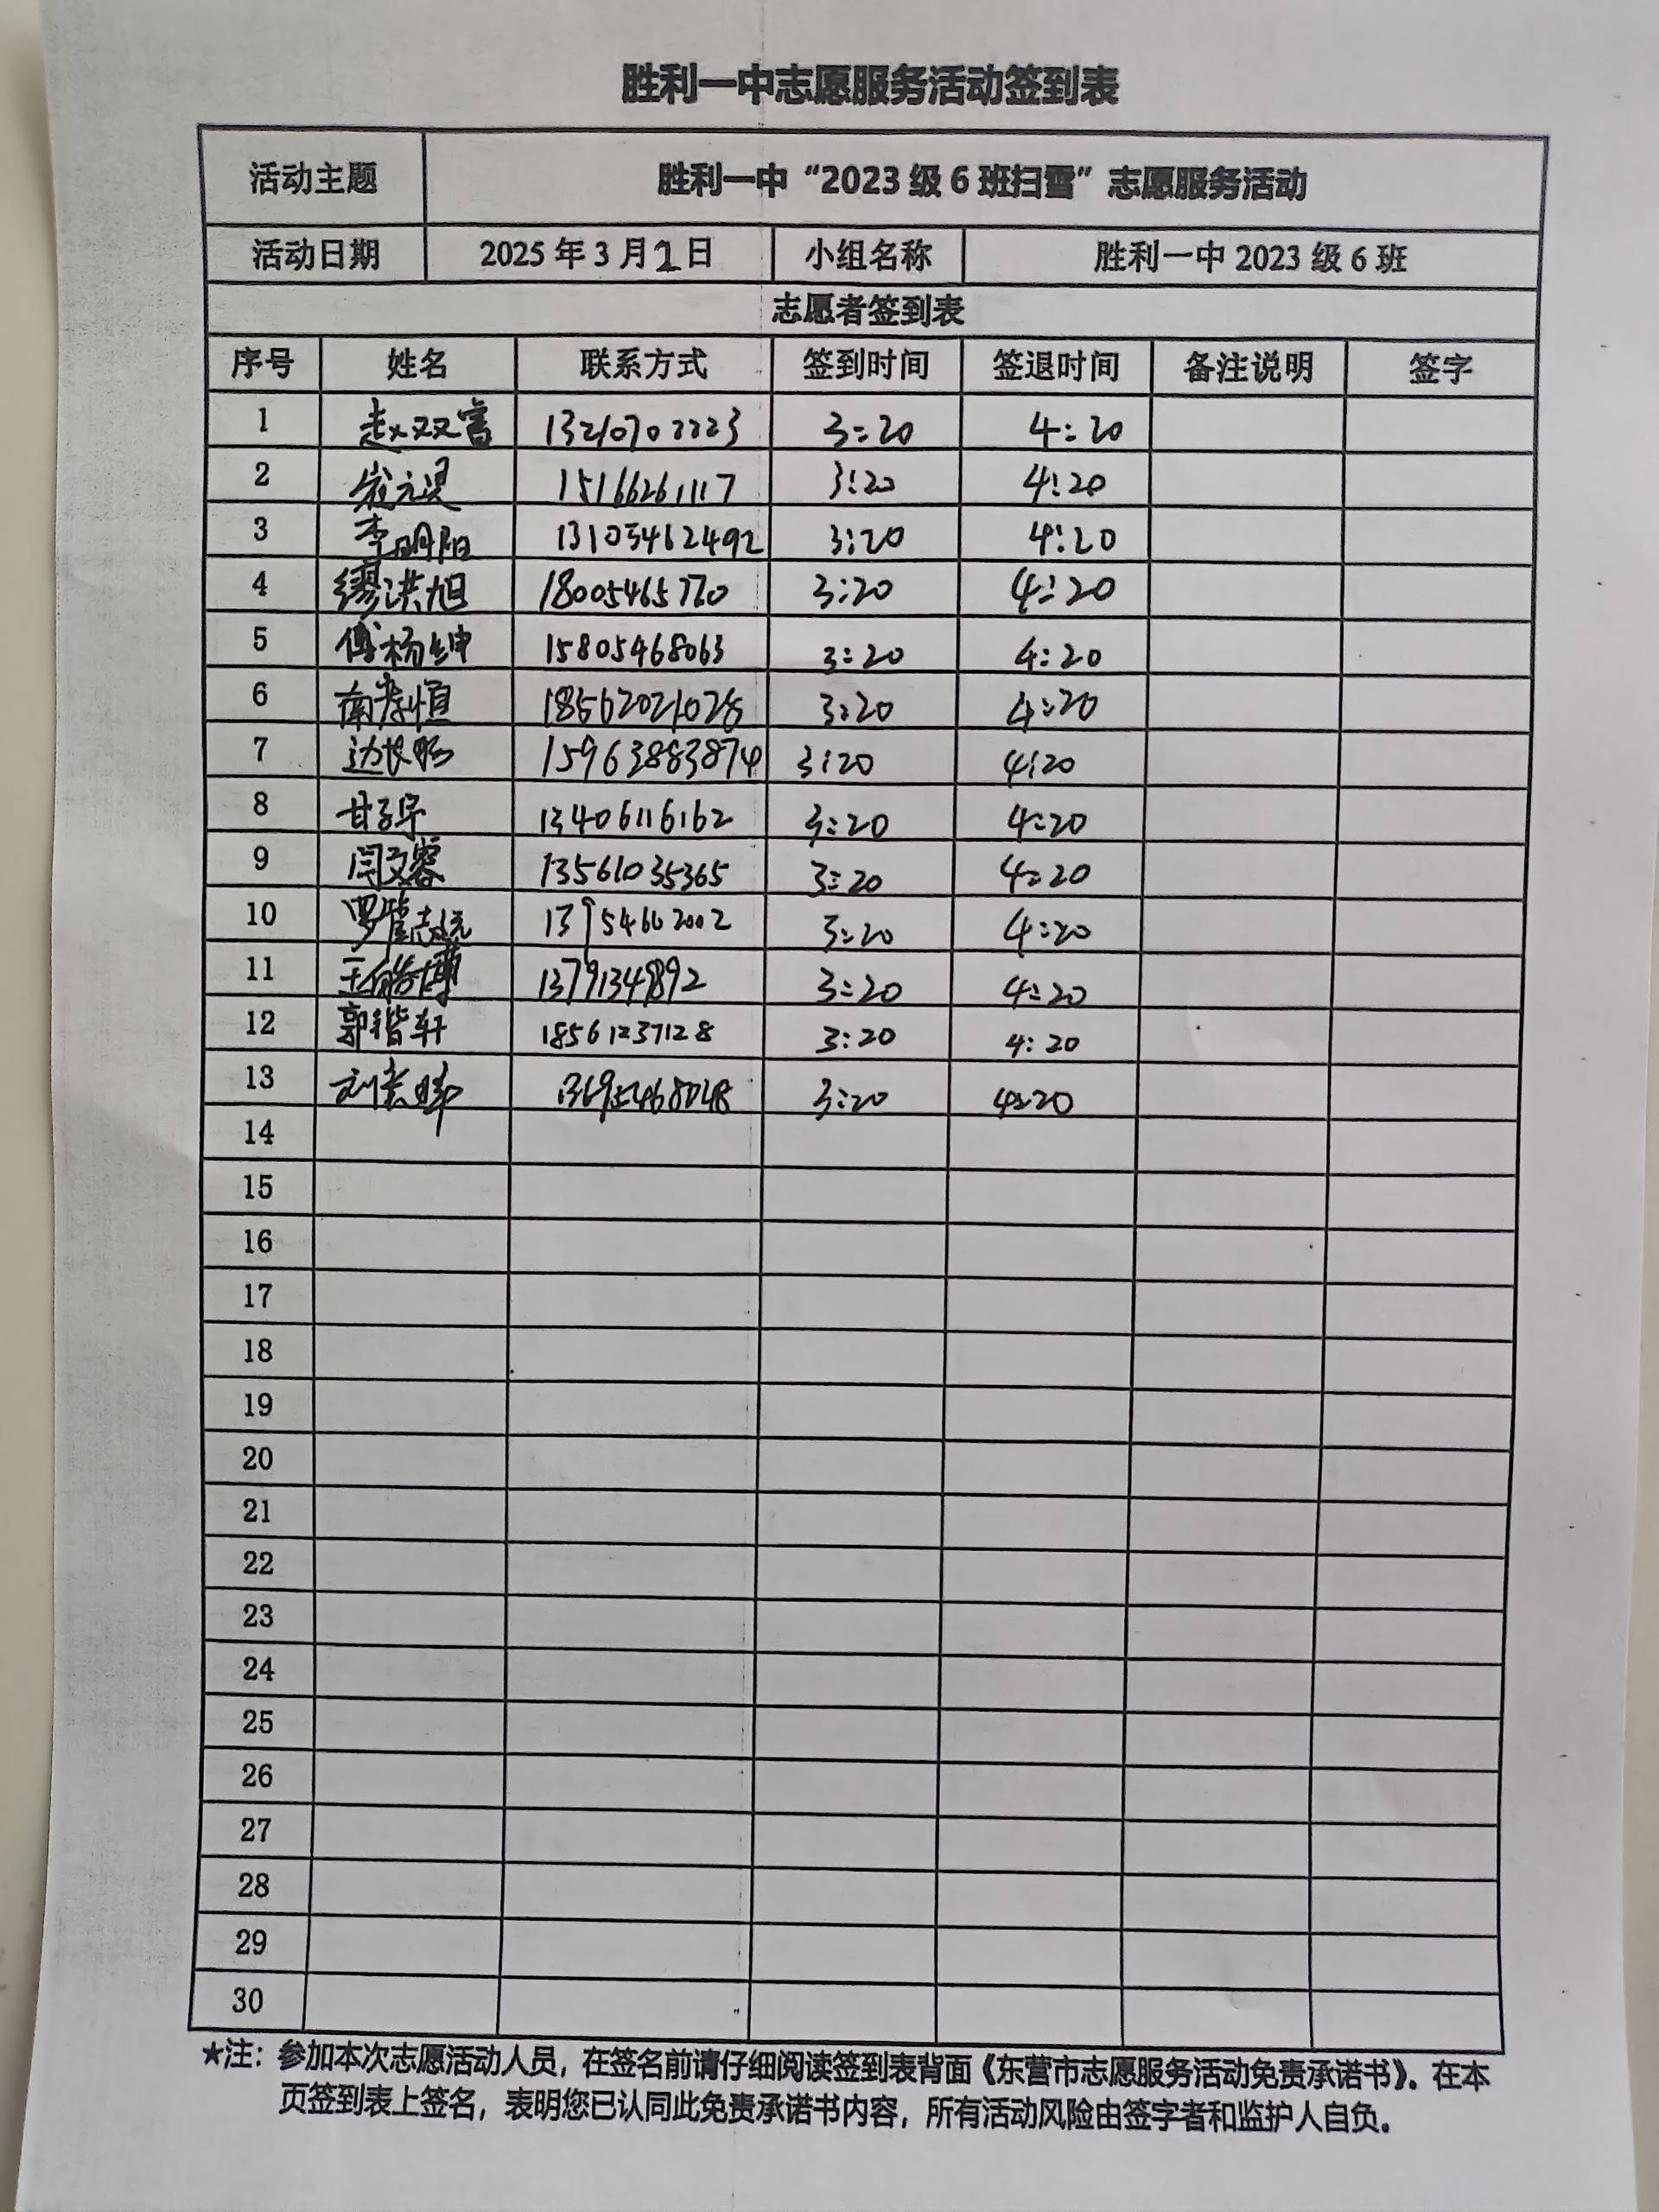 胜利一中志愿服务活动签到表
活动主题 胜利一中“2023 级 6 班扫雪”志愿服务活动
活动日期 2025 年 3 月 2 日 小组名称 胜利一中 2023 级 6 班
志愿者签到表
序号 姓名 联系方式 签到时间 签退时间 备注说明 签字
1 赵双富 13210702223 3:20 4:20
2 15166261117 3:20 4:20
3 李明阳 13105462492 3:20 4:20
4 缪洪旭 18005465770 3:20 4:20
5 傅杨绅 15805468063 3:20 4:20
6 南孝恒 18562021028 3:20 4:20
7 边长旸 15963883874 3:20 4:20
8 甘子平 13406116162 3:20 4:20
9 闫文睿 13561035365 3:20 4:20
10 3:20 4:20
11 王皓博 13791349892 3:20 4:20
12 郭锴轩 18561237128 3:20 4:20
13 13695468048 3:20 4:20
14
15
16
17
18
19
20
21
22
23
24
25
26
27
28
29
30
★注：参加本次志愿活动人员，在签名前请仔细阅读签到表背面《东营市志愿服务活动免责承诺书》。在本
页签到表上签名，表明您已认同此免责承诺书内容，所有活动风险由签字者和监护人自负。